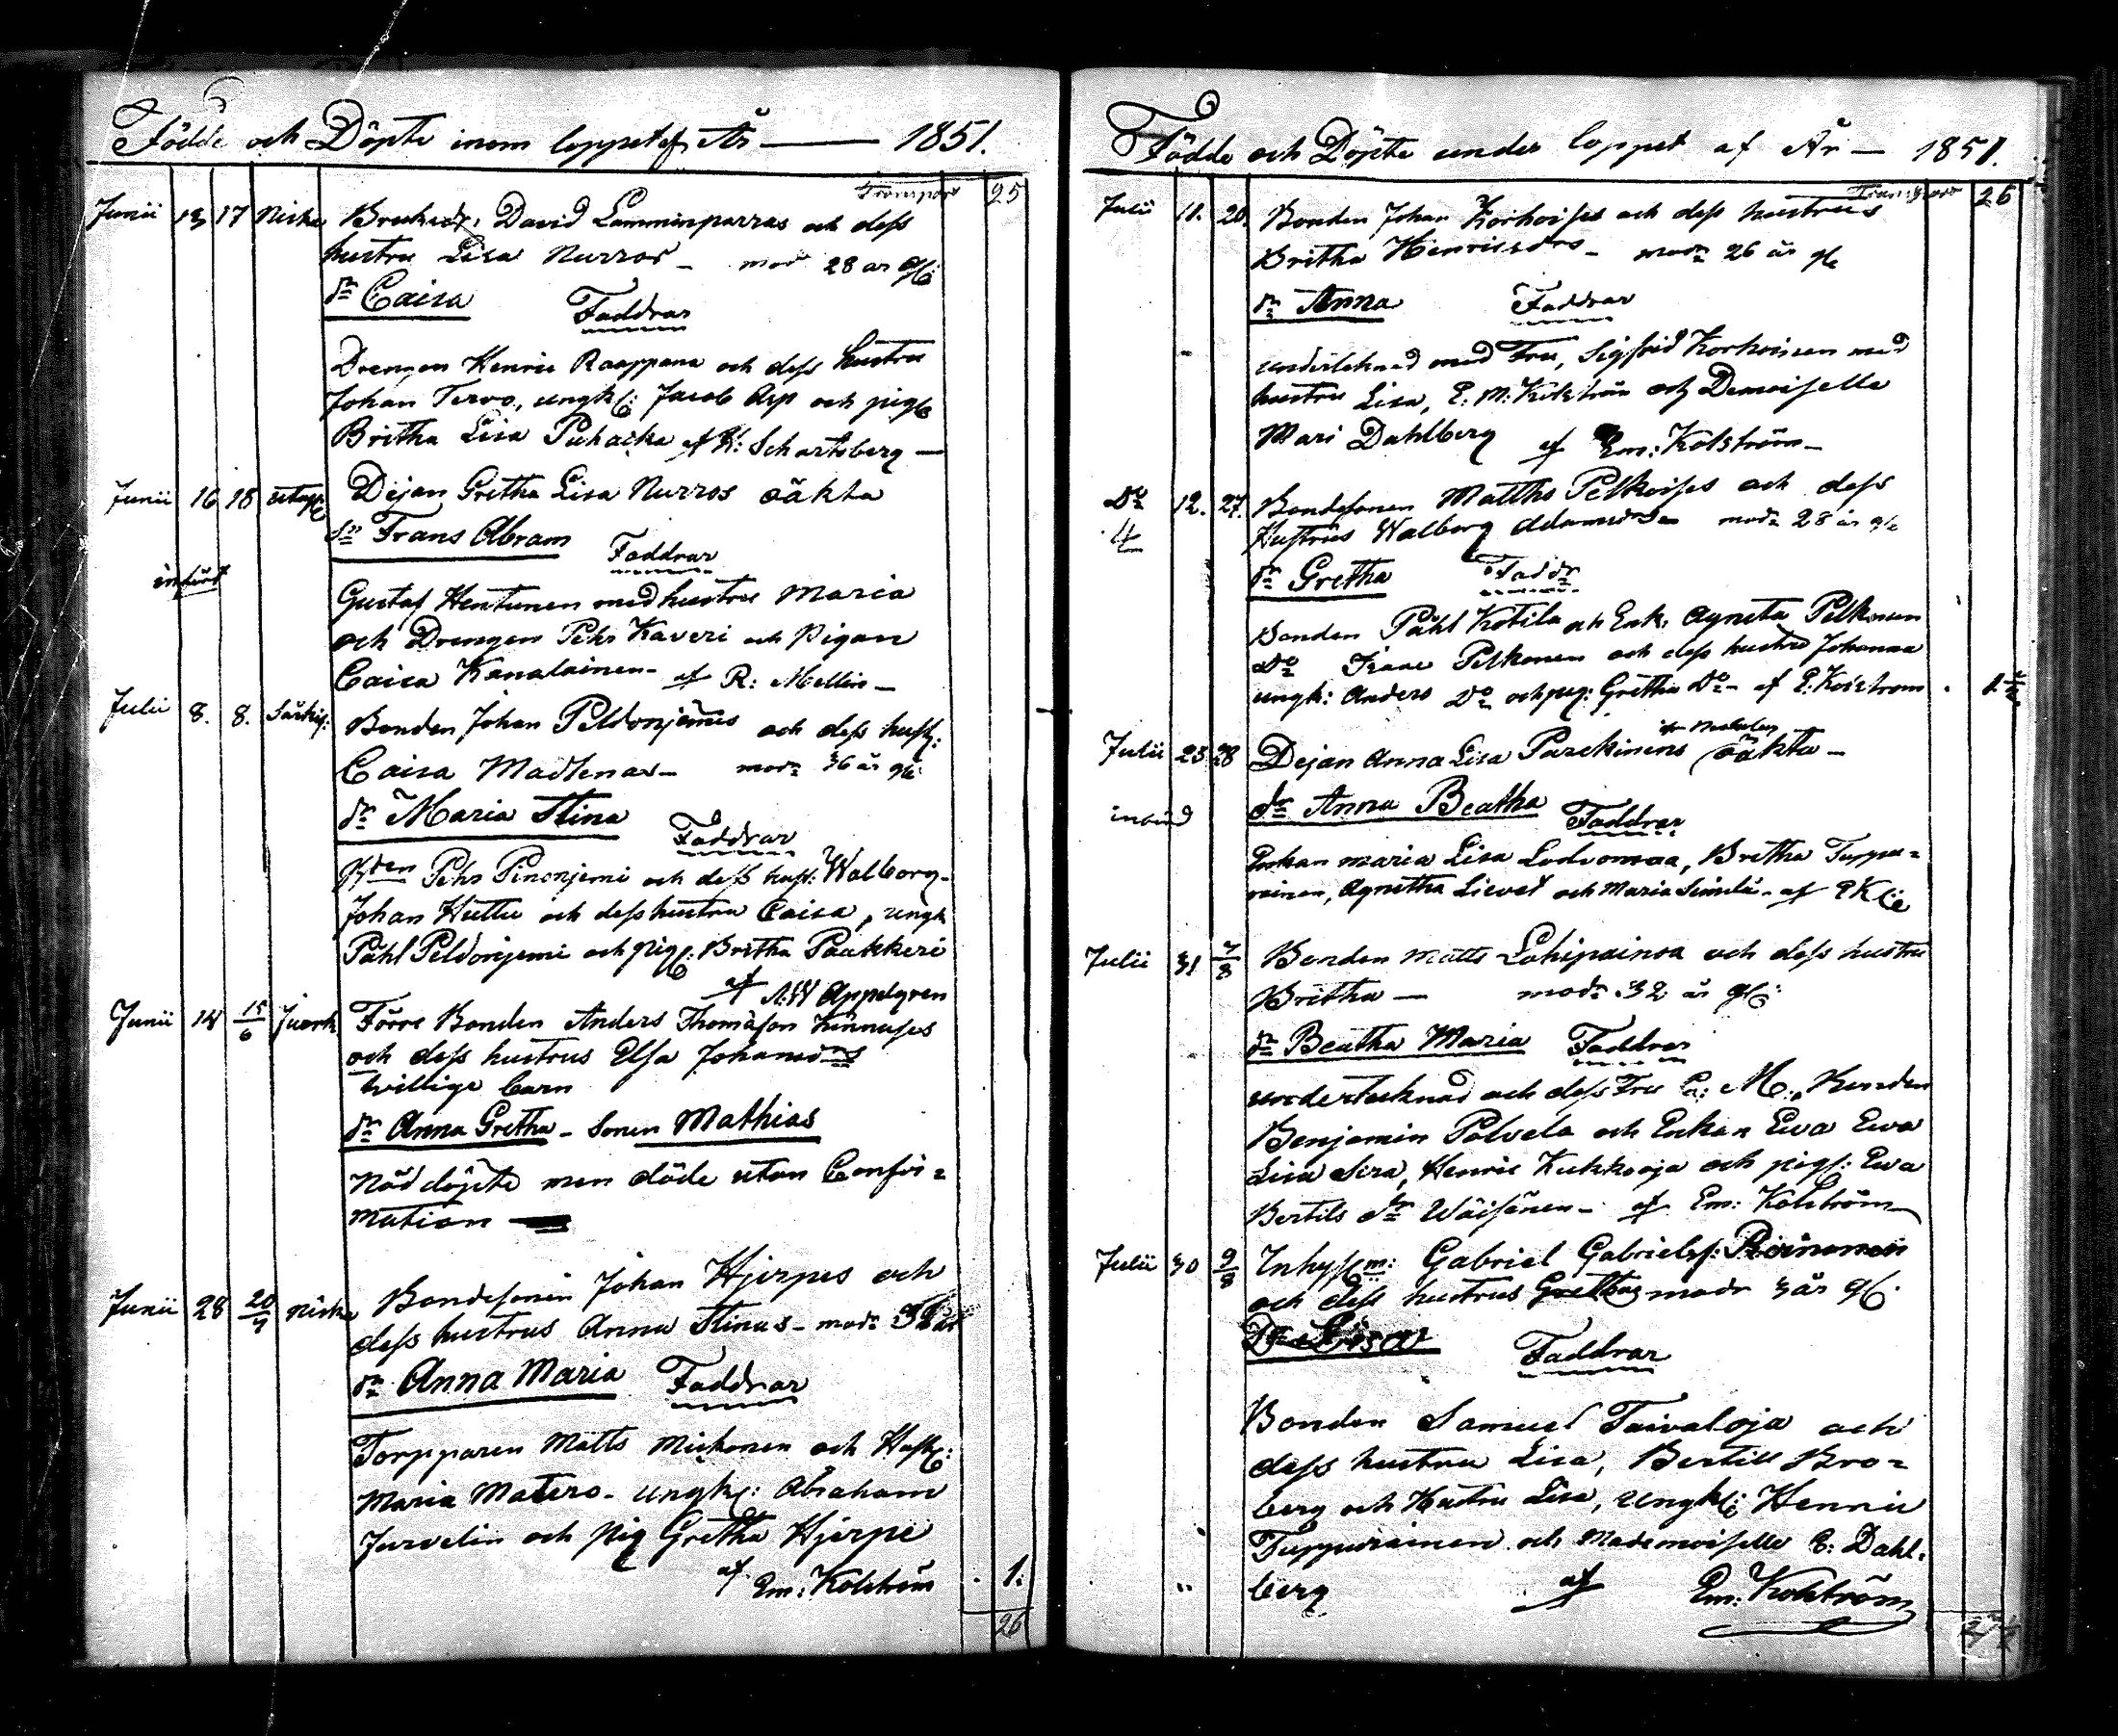 Födde och Döpte inom loppet af År — 1851.
Transport 25
Junii 13 17 Niska Brukedr: David Lamminparras och dess
hustru Lisa Nurros – modr 28 år gl:
dr Caisa Faddrar
Drengen Henric Raappana och dess hustru
Johan Tervo, ungk: Jacob Arp och pig:
Britha Lisa Puhacka af H: Schartsberg –
Junii 16 18 Dejan Gretha Lisa Nurros oäkta
sn Frans Abram Faddrar
införd
Gustaf Hentunen med hustru Maria
och Drengen Pehr Kaveri och Pigan
Caisa Kanalainen – af R: Mellin –
Julii 8. 8. Särkij: Bonden Johan Peldonjemis och dess hust:
Caisa Madlenas – modr 36 år gl:
dr Maria Stina Faddrar
Bden Pehr Pinonjemi och dess hust: Walborg –
Johan Huttu och dess hustru Caisa, ungk
Påhl Peldonjemi och pig: Britha Paakkeri
af A.W Appelgren
Junii 14 15/6 Juork Förre Bonden Anders Thomasson Kinnuses
och dess hustrus Elsa Johansdrs
tvillige barn
dr Anna Gretha – Sonen Mathias
Nöddöpte men döde utan Confir=
mation —
Junii 28 20/7 Niska Bondesonen Johan Hjerpes och
dess hustrus Anna Stinas – modr år
dr Anna Maria Faddrar
Torpparen Matts Mickonen och Hust:
Maria Matero – Ungk: Abraham
Jurvelin och Pig Gretha Hjerpe
af Em: Kolström 1.
26
Födde och Döpte under loppet af År — 1851.
Transport 26
Julii 11. 20. Bonden Johan Korhoises och dess hustrus
Britha Henricsdrs – modr 26 år gl
dr Anna Faddrar
underteknad med Fru, Sigfrid Korhoinen med
hustru Lisa, E: M: Kolström och Demoiselle
Mari Dahlberg af Em: Kolström –
Do 12. 27. Bondesonen Matths Pelkoises och dess
4 Hustrus Walborg Adamsdrs modr 28 år gl
dr Gretha Faddr
Bonden Påhl Kotila och Enk: Agneta Pelkonen
Do Isaac Pelkonen och dess hustru Johanna
ungk: Anders Do och pig: Gretha Do – af E: Kolstrom
Julii 23 28 Dejan Anna Lisa Parckinens oäkta –
införd dr Anna Beatha Faddrar
Enkan Maria Lisa Lodvomaa, Britha Tuppu=
rainen, Agnetha Sievet och Maria Simelä – af EK
Julii 31 7/8 Bonden Matts Lohipainoa och dess hustru
Britha — modr 32 år gl:
dr Beatha Maria Faddrar
undertecknad och dess Fru C: M:, Bonden
Benjamin Polvela och Enkan Ewa Ewa
Lisa Sisa, Henric Kukkooja och pig: Ewa
Bertils dr Wäisänen – af Em: Kolström
Julii 30 9/8 Inhysm: Gabriel Gabriels: Roinonen
och dess hustrus Grethas modr 3 år gl:
Dr Lisa Faddrar
Bonden Samuel Taivaloja och
dess hustru Lisa, Bertill Bro=
berg och Hustru Lisa, Ungk: Henric
Tuppurainen och Mademoiselle C: Dahl=
berg af Em: Kolström